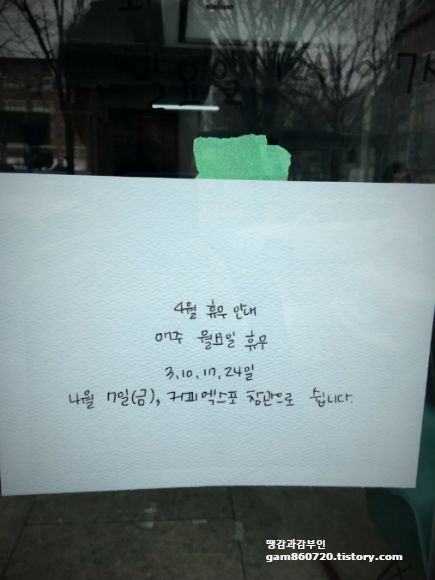 일요일
4월 휴무 안내
매주 월요일 휴무
3, 10, 17, 24일
4월 7일(금), 커피엑스포 참관으로 쉽니다.
땡감과감부인
gam860720.tistory.com